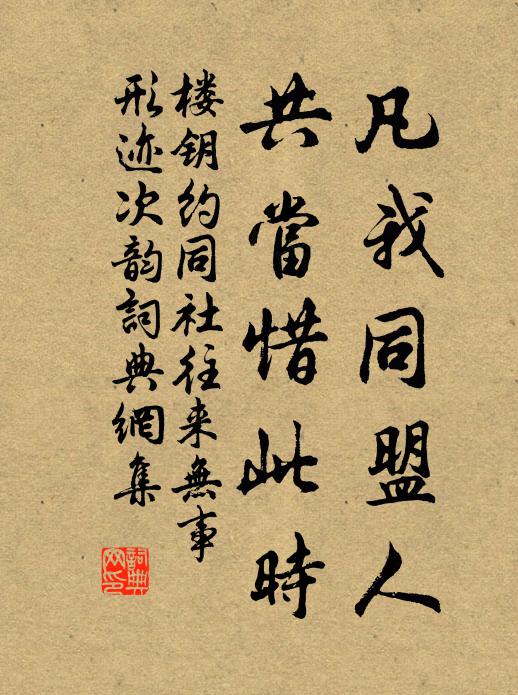 凡我同盟人
共當惜此時
楼钥约同社往来無事
形迹次韵詞典網集
詞典網印